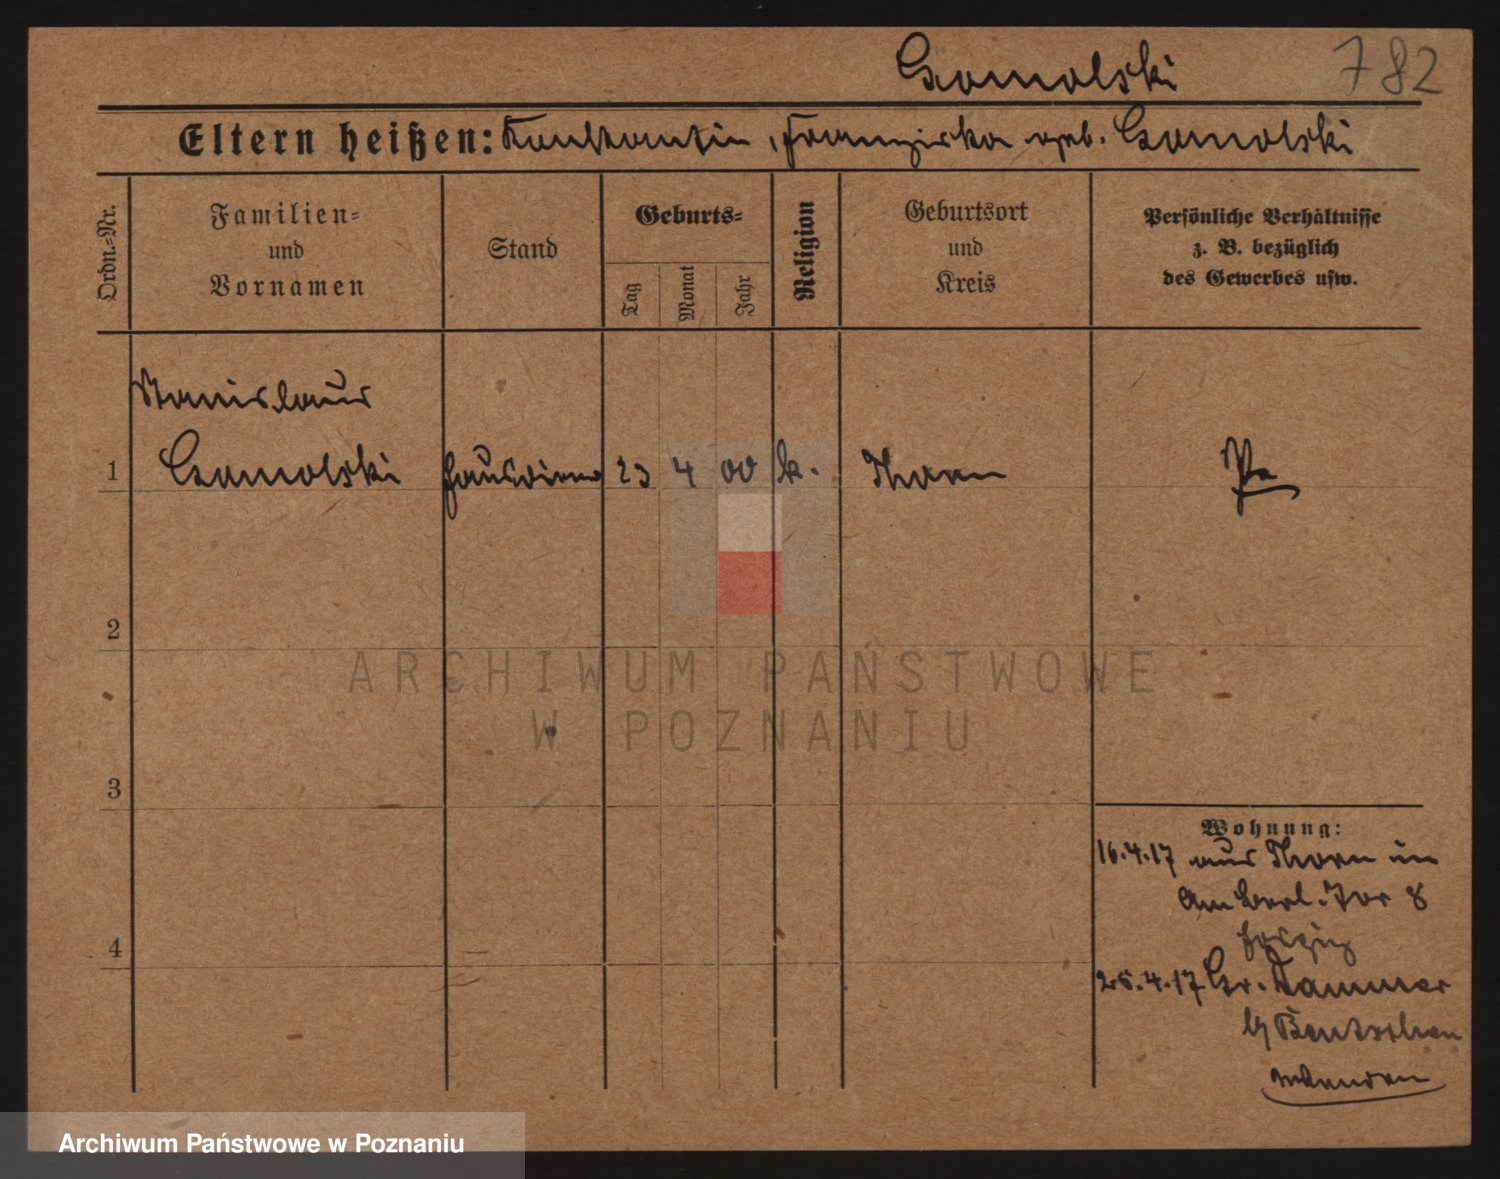 Gomolski 782
Eltern heißen: Konstantin, Franziska geb. Gomolski
Ordn.-Nr.
Familien-
und
Vornamen
Stand
Geburts-
Tag
Monat
Jahr
Religion
Geburtsort
und
Kreis
Persönliche Verhältnisse
z. B. bezüglich
des Gewerbes usw.
Stanislaus
1 Gomolski Hausdiener 23 4 00 k. Thorn
2
ARCHIWUM PAŃSTWOWE
W POZNANIU
3
Wohnung:
16.4.17 aus Thorn in
Am Berl. Tor 8
4
25.4.17. Gr. Dammer
b/ Bentschen
Archiwum Państwowe w Poznaniu